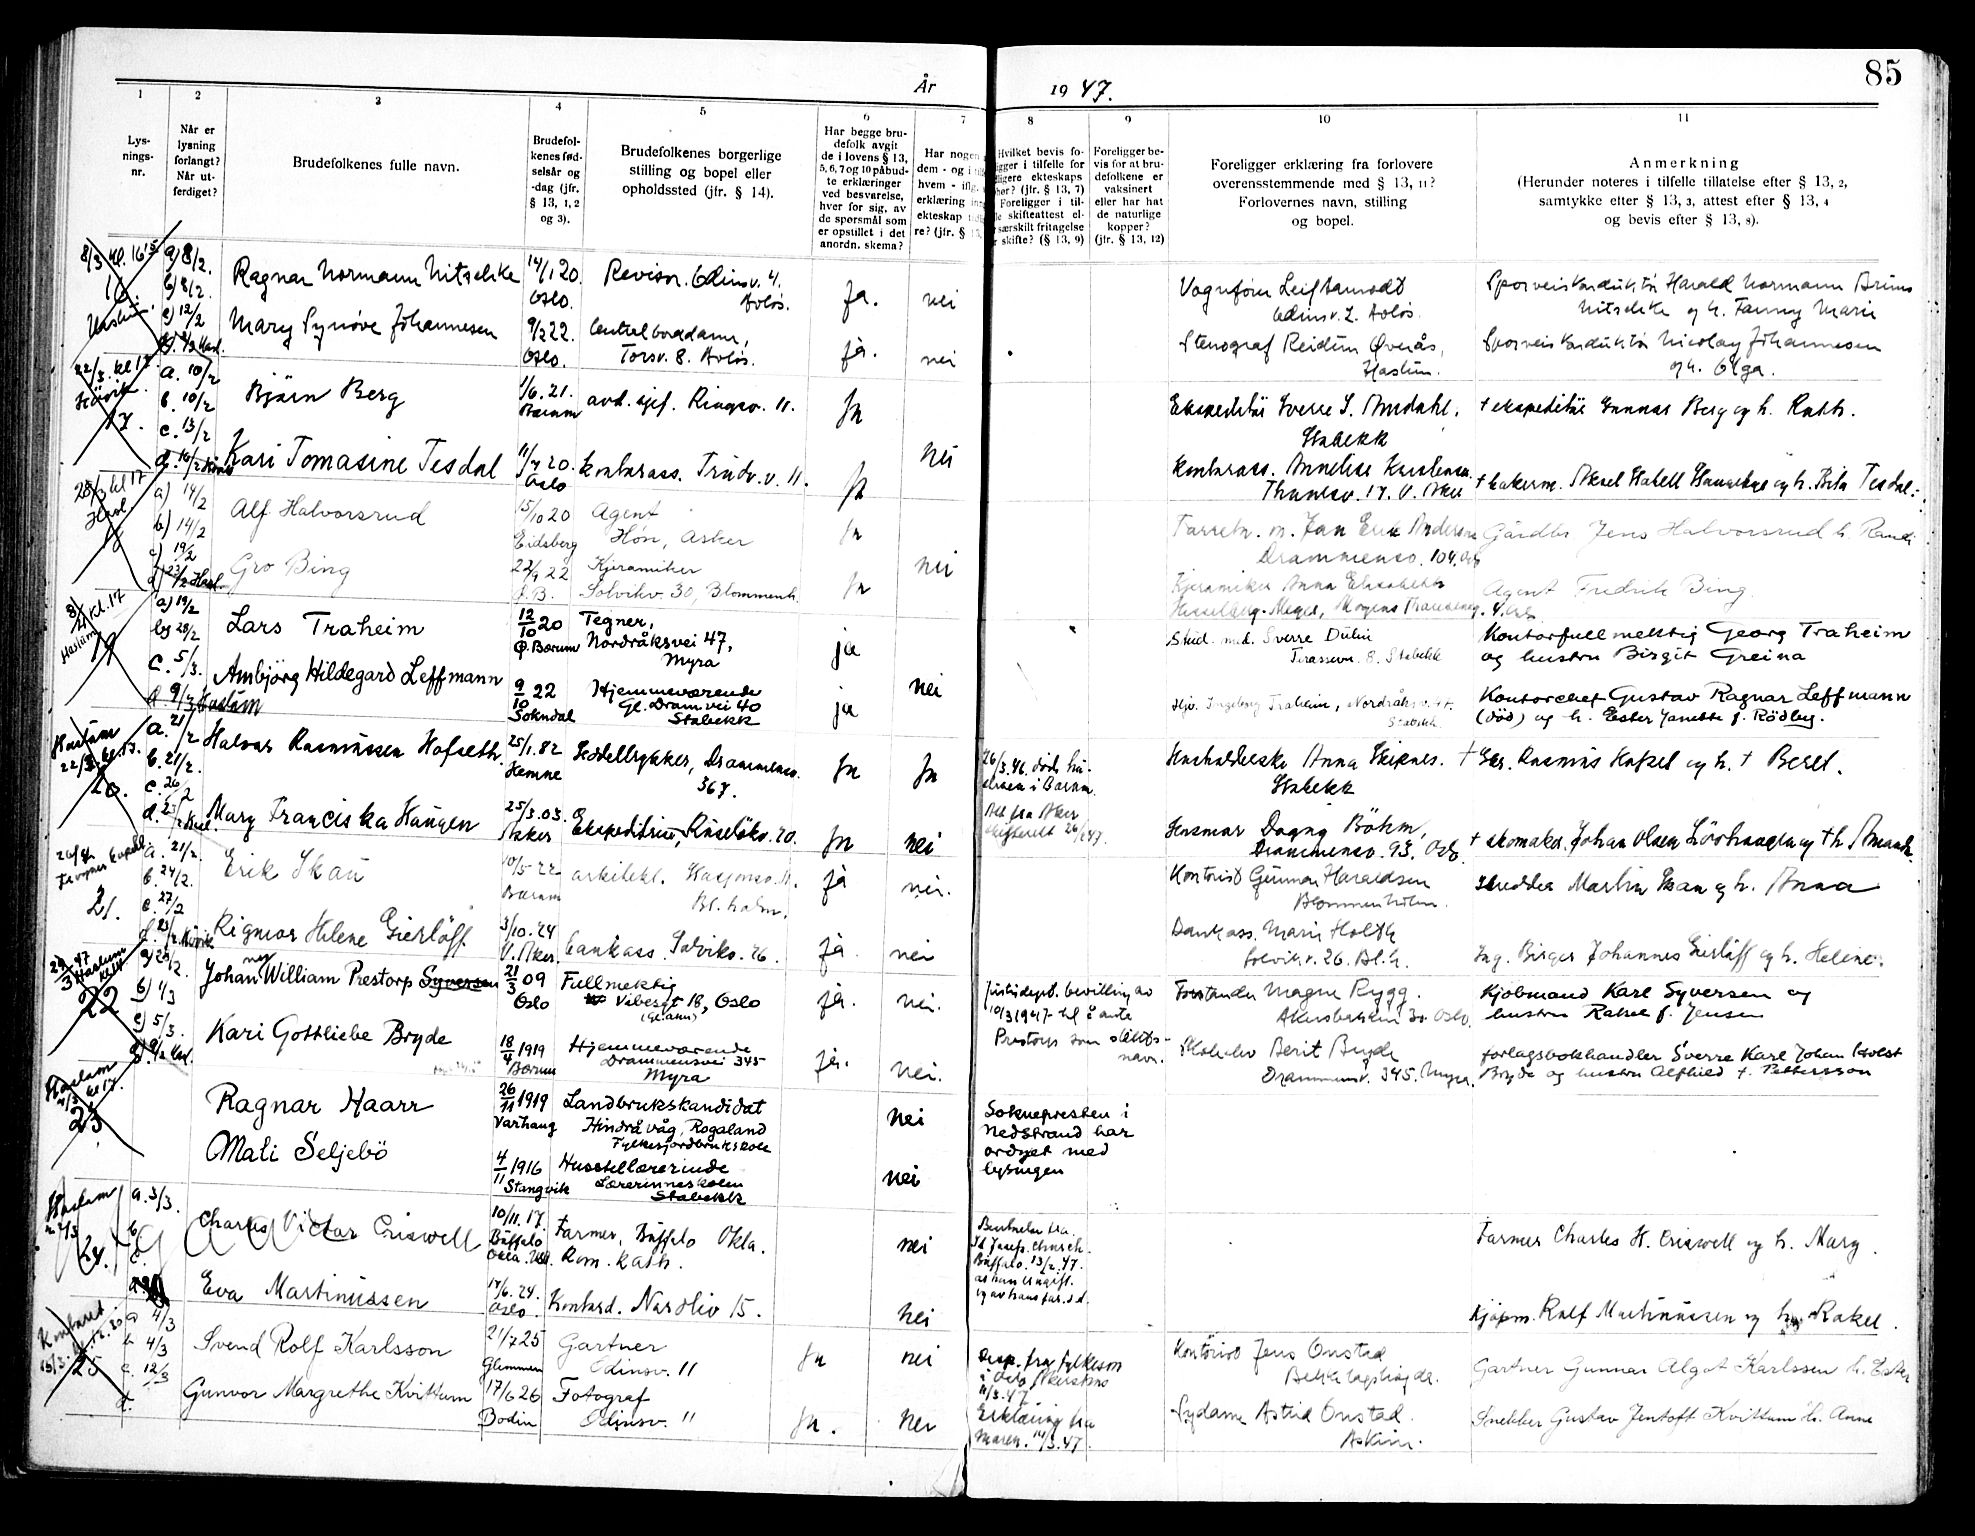 85
År 1947.
1 2 3 4 5 6 7 8 9 10 11
Lys-
nings-
nr.
Når er
lysning
forlangt?
Når ut-
ferdiget?
Brudefolkenes fulle navn.
Brudefol-
kenes fød-
selsår og
-dag (jfr.
§ 13, 1, 2
og 3).
Brudefolkenes borgerlige
stilling og bopel eller
opholdssted (jfr. § 14).
Har begge bru-
defolk avgit
de i lovens § 13,
5, 6, 7 og 10 påbud-
te erklæringer
ved besvarelse,
hver for sig, av
de spørsmål som
er opstillet i det
anordn. skema?
Har nogen
dem - og i
hvem - iflg.
erklæring
ekteskap
re? (jfr. §
Hvilket bevis fo-
ligger i tilfelle for
ekteskaps
(jfr. § 13, 7)
Foreligger i til-
skifteattest el-
særskilt fritagelse
skifte? (§ 13, 9)
Foreligger be-
vis for at bru-
defolkene er
vaksinert
eller har hat
de naturlige
kopper?
(jfr. § 13, 12)
Foreligger erklæring fra forlovere
overensstemmende med § 13, 11?
Forlovernes navn, stilling
og bopel.
Anmerkning
(Herunder noteres i tilfelle tillatelse efter § 13, 2,
samtykke efter § 13, 3, attest efter § 13, 4
og bevis efter § 13, 8).
8/3 kl. 16 15
16.
Haslum
a) 8/2.
b) 8/2.
c) 12/2
Ragnar Normann Nitschke
14/1 20
Oslo.
Revisor. Odinsv. 4.
Avløs.
Ja. nei
Vognform Leif
Odinsv. 2. Avløs.
Sporveiskonduktør Harald Normann
Nitschke og h. Fanny Marie
Mary Synøve Johannesen
9/2 22.
Oslo.
Centralborddame,
Torsv. 8. Avløs.
Ja. nei
Stenograf Reidun Øverås,
Haslum.
Sporveiskonduktør Nicolay Johannesen
og h. Olga.
22/3. kl 17.
Høvik
17.
a. 10/2
b. 10/2
c. 13/2
d. 16/2
Bjørn Berg
1/6. 21.
Bærum
avd. sjef. Ringsv. 11.
Ja
Ekspeditør Sverre S. Amdahl.
Stabekk
† ekspeditør Gunnar Berg og h. Ruth.
Kari Tomasine Tesdal
11/7 20.
Oslo
kontorass. Trudv. v. 11.
Ja nei
Kontorass. Annelise
Thunesv. 17. V. Aker
Tesdal
28/3 kl 17
Hasl.
18
a) 14/2
b) 14/2
c) 19/2
d) 23/2 Hasl.
Alf Halvorsrud
15/10 20
Eidsberg
Agent
Høn, Asker
Ja
Jan Erik Anderssen
Drammensv. 104, Oslo
Gårdbr Jens Halvorsrud h. Randi
Gro Bing
22/9 22
Ø. B.
Kjeramiker
Solvikv. 30, Blommenh.
Ja nei
Kjeramiker Anna Elisabeth
Agent Fredrik Bing
8/4 Kl. 17
Haslum
19
a) 19/2
b) 28/2
c. 5/3.
d. 9/3 Haslum
Lars Traheim
12/10 20
Ø. Bærum
Tegner,
Nordråksvei 47,
Myra
ja
Stud. med. Sverre Dulin
Terassevn. 8. Stabekk
Kontorfullmektig Georg Traheim
og hustru Birgit Greina
Ambjörg Hildegard Leffmann
9/10 22
Sokndal
Hjemmeværende
Gl. Dram vei 40
Stabekk
ja nei
Hjv. Ingeborg Traheim, Nordråksv. 47.
Stabekk
Kontorchef Gustav Ragnar Leffmann
(död) og h. Ester Janette f. Rödby.
Haslum
22/3. kl. 13.
20.
a. 21/2
b. 21/2.
c. 26/2
Halvar Rasmussen Hofseth.
25/1. 82
Hemne
Seddeltrykker, Drammensv.
367.
Ja Ja
26/3. 46. døde hu-
struen i Bærum.
Husholderske Anna
Stabekk
† Gbr. Rasmus og h. † Beret.
Mary Franciska Haugen
25/3. 03.
Aker
Ekspeditrise, Ruseløkv. 20.
Ja nei
Att fra Aker
skifterett 26/2 47.
Dagny Böhm,
Drammensv. 93. Oslo.
† skomaker. Johan Olsen og † h.
21.
a. 21/2.
b. 24/2.
c. 27/2
Erik Skau
10/5-22
Bærum
arkitekt. 11.
Bl. holm.
ja nei.
Kontorist Gunnar Haraldsen
Blommenholm.
Skredder Martin Skau og h. Anna
Rigmor Helene Gierløff
3/10. 24
V. Aker.
bankass. Solvikv. 26.
ja. nei
Bankass. Marie Holth
Solvikv. 26. Bl. h.
Ing. Birger Johannes Gierløff og h. Helene.
29/3 47
Haslum
22
a) 25/2.
b) 4/3
c) 5/3.
Johan William Prestorp Syversen
21/3 09
Oslo
Fullmektig
Vibesgt 18, Oslo
ja. nei.
Justisdept. bevilling av
10/3 1947 til å anta
Prestorp som slekts-
navn.
Forstander Magne Rygg.
Akersbakken 30. Oslo.
Kjöbmand Karl Syversen og
hustru Rakel f. Jensen
Kari Gottliebe Bryde
18/4 1919
Bærum
Hjemmeværende
Drammensvei 345
Myra
ja. nei.
Berit Bryde
Drammensv. 345. Myra.
Forlagsbokhandler Sverre Karl Johan Holst
Bryde og hustru Alfhild f. Pettersson
Haslum
kl 17.
23
Ragnar Haarr
26/11 1919
Varhaug
Landbrukskandidat
Hindrå våg, Rogaland
Fylkesjordbrukskole
nei
Soknepresten i
Nedstrand har
ordnet med
lysingen
Mali Seljebö
4/11 1916
Stangvik
Husstellærerinde
Lærerinneskolen
Stabekk
nei
Haslum
24.
a. 3/3.
b.
c.
Charles Victor Criswell
10/11. 17.
Buffalo
Okla. USA.
Farmer, Buffalo Okla.
Rom. kath.
nei
St Josefs church.
Buffalo. 13/2. 47.
at han er ugift.
Farmer Charles H. Criswell og h. Mary.
Eva Martinussen
17/6. 24.
Oslo.
Kontord. Nordliv 15.
nei
Kjøpm. Rolf Martinussen og h. Rakel.
Kontoret
15/3.
25
a 4/3
b 4/3
c. 12/3
d.
Svend Rolf Karlsson
21/7 25
Glemmen
Gartner
Odinsv. 11
Ja nei
Disp. fra fylkesm
i Oslo Akershus
11/3. 47
Kontorist Jens Onstad
Gartner Gunnar Algot Karlsson h. Ester
Gunvor Margrethe Kvittum
17/6 26
Bodin
Fotograf
Odinsv. 11
Ja. Nei
Erklæring fra
moren. 14/3. 47
Sydame Astrid Onstad.
Askim.
Snekker Gustav Jentoft Kvittum h. Anne